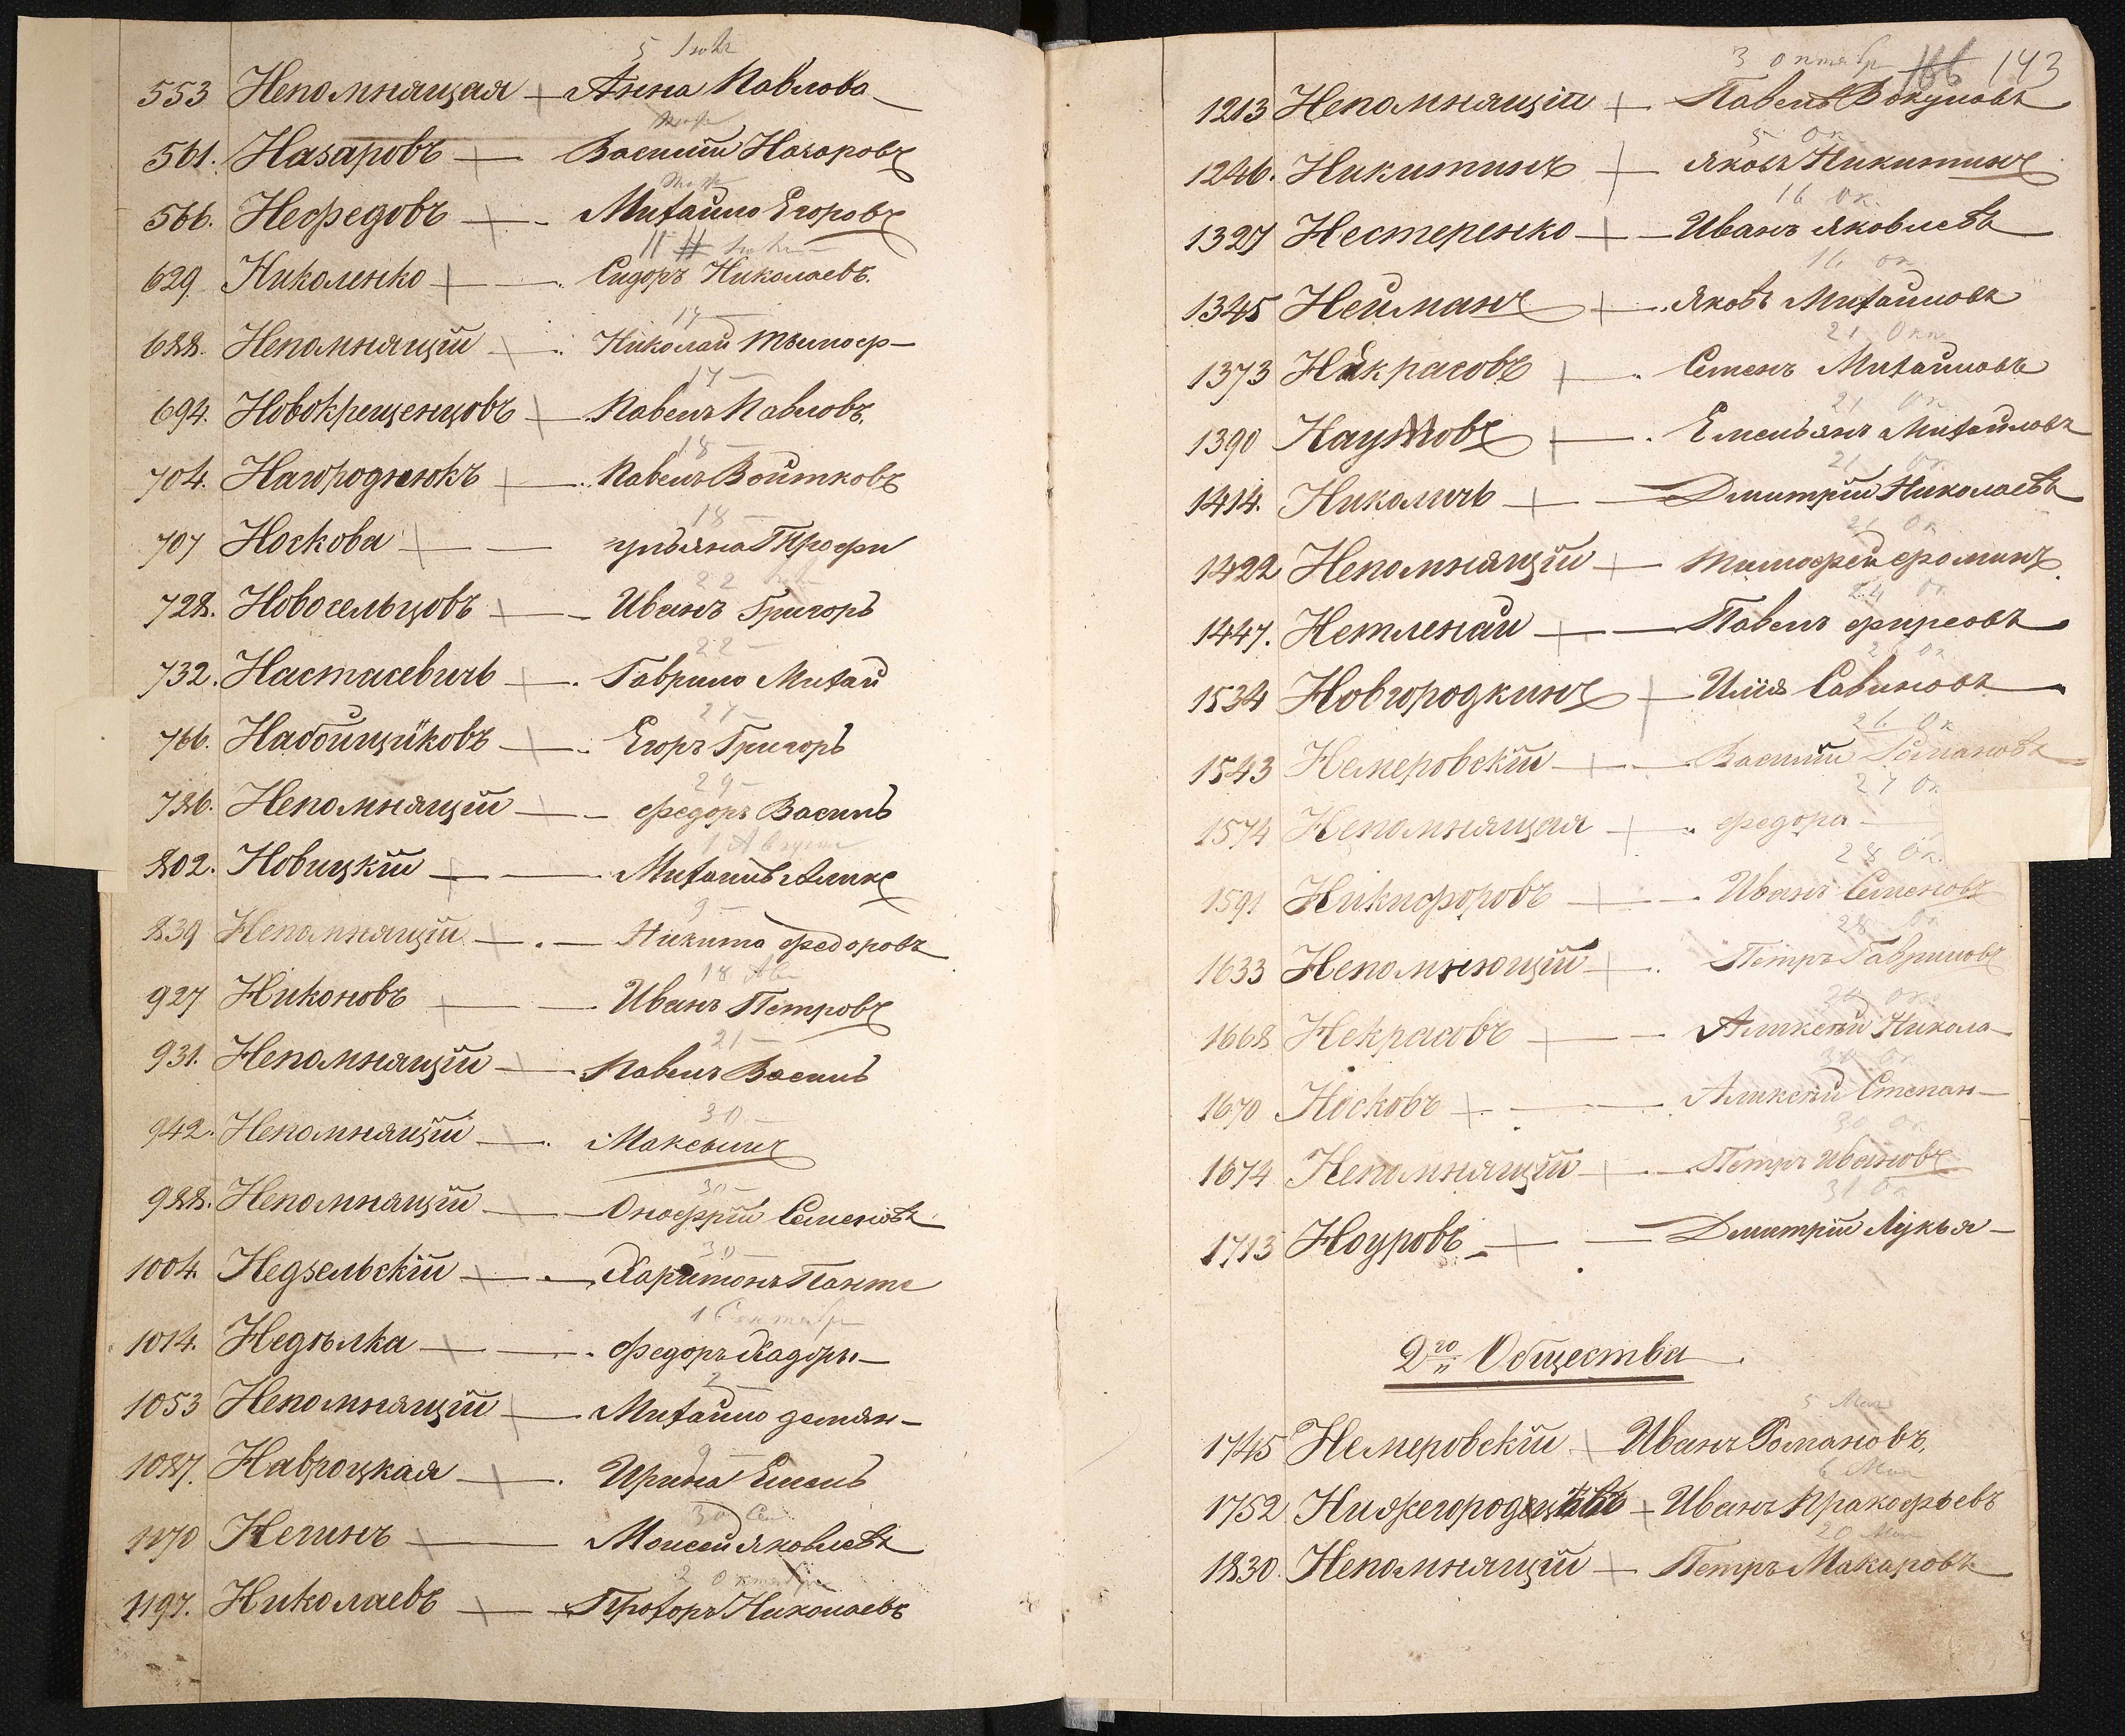 5 Іюля
553 Непомнящая — Анна Павлова
561. Назаровъ — Василій Назаровъ
566. Нефедовъ — Михайло Егоровъ
11 Іюля
629. Николенко — Сидоръ Николаевъ.
17 —
688. Непомнящій — Николай Тимоф—
17 —
694. Новокрещенцовъ — Павелъ Павловъ.
18 —
704. Нагороднюкъ — Павелъ Войтковъ
18 —
707 Носкова — Ульяна Трофи
22
728. Новосельцовъ — Иванъ Григорь
22 —
732. Настасевичь — Гаврило Михай
27 —
766. Набойщиковъ — Егоръ Григорь
29 —
786. Непомнящій — Федоръ Василь
1 Августа
802. Новицкій — Михаилъ Аликс
9 —
839 Непомнящій — Никита Федоровъ
18 Ав
927 Никоновъ — Иванъ Петровъ
21 —
931. Непомнящій — Павелъ Василь
30 —
942. Непомнящій — Максимъ
30 —
988. Непомнящій — Онофрій Семеновъ
30 —
1004. Недзельскій — Харитонъ Панте
1 Сентября
1014. Недѣлка — Федоръ Хадоры—
2 —
1053 Непомнящій — Михайло демян—
9 —
1087. Навроцкая — Ирина Емель
30 Сен
1170 Негинъ — Моисей Яковлевъ
2 Октября
1197. Николаевъ — Прохоръ Николаевъ
3 октября 166 143
1213 Непомнящій — Павелъ Вокуловъ
5 Ок
1246. Никитинъ — Яковъ Никитинъ
16 Ок.
1327 Нестеренко — Иванъ Яковлевъ
16 ок
1345 Нейманъ — Яковъ Михайловъ
21 Окт
1373 Никрасовъ — Семенъ Михайловъ
21 Ок
1390 Наумовъ — Емельянъ Михайловъ
21 Ок.
1414. Николичь — Дмитрій Николаевъ
21 Ок
1422 Непомнящій — Тимофей Фоминъ
24 Ок
1447. Нетленай — Павелъ Фирсовъ
26 Ок
1534 Новгородкинъ — Илія Савиновъ
26 Ок
1543 Немеровскій — Василій Романовъ
27 Ок
1574 Непомнящая — Федора —
28 Ок.
1591 Никифоровъ — Иванъ Семеновъ
28 Ок
1633 Непомнющій — Петръ Гавриловъ
30 Ок
1668 Некрасовъ — Аликсѣй Никола—
30 Ок
1670 Носковъ — Аликсѣй Степан—
30 Ок
1674 Непомнящій — Петръ Ивановъ
31 Ок
1713 Ноуровъ — Дмитрій Лукья—
2го Общества
5 Мая
1745 Немеровскій — Иванъ Романовъ.
6 Мая
1752 Нижегородцевъ — Иванъ Пракофьевъ
20 Мая
1830. Непомнящій — Петръ Макаровъ